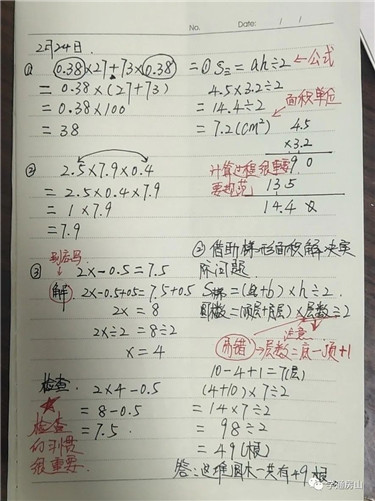 No.
Date: / /
2月24日.
① 0.38×27+73×0.38
= 0.38×(27+73)
= 0.38×100
= 38
② 2.5×7.9×0.4
= 2.5×0.4×7.9
= 1×7.9
=7.9
③ 2x-0.5=7.5
解 2x-0.5+0.5=7.5+0.5
2x = 8
2x÷2 = 8÷2
x = 4
检查
2×4-0.5
= 8-0.5
= 7.5.
检查
的习惯
很重要.
二① S三=ah÷2 ←公式
4.5×3.2÷2
=14.4÷2 面积单位
=7.2(cm²)
4.5
×3.2
9 0
13.5
14.4 0
计算过程很重要
要规范
② 借助梯形面积解决实
际问题.
S梯=(a+b)×h÷2
圆木数=(顶层+底层)×层数÷2
注意
易错→层数=底-顶+1
10-4+1=7(层)
(4+10)×7÷2
= 14×7÷2
= 98÷2
= 49(根)
答:这堆圆木一共有49根.
学源房山